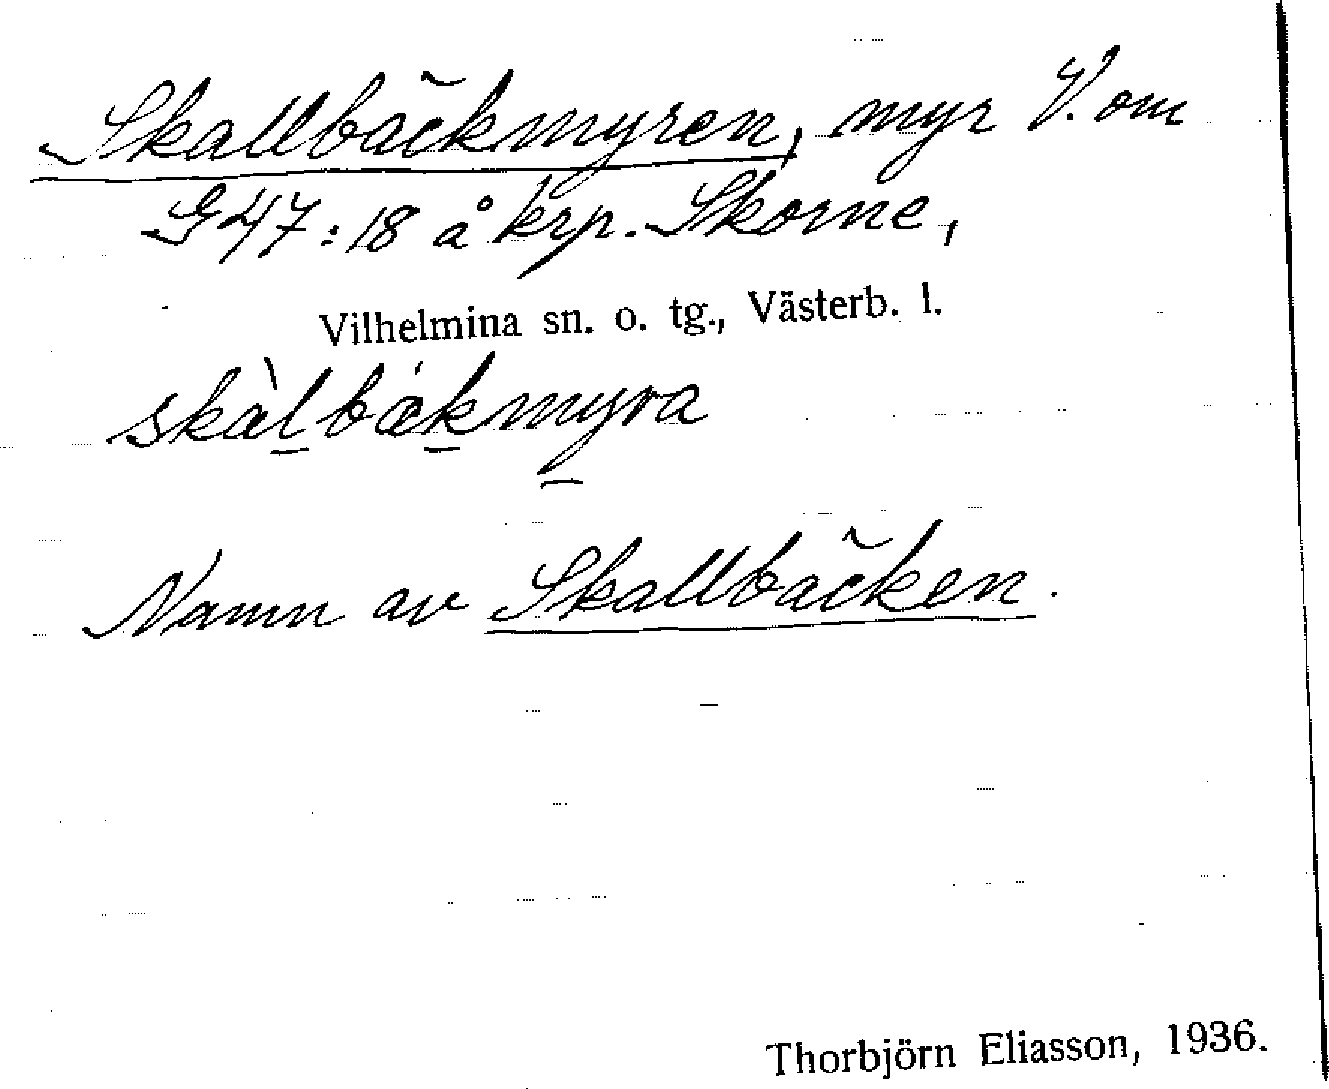 Skallbäckmyren, myr V. om
G47:18 å krp. Skorne,
Vilhelmina sn. o. tg., Västerb. l.
skàl̲bák̲my̲ra
Namn av Skallbäcken.
Thorbjörn Eliasson, 1936.